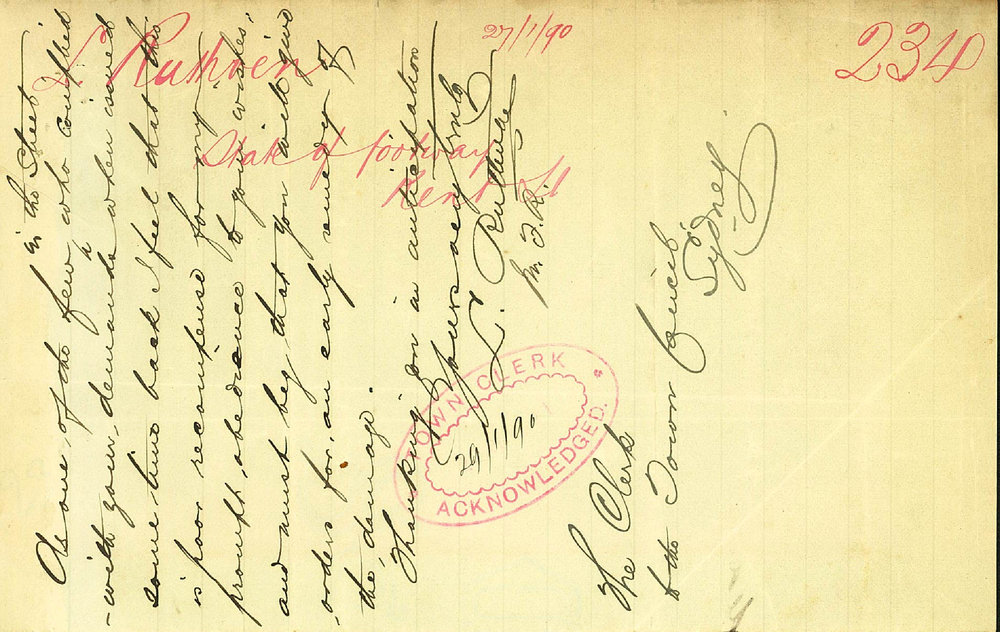 234
27/1/90
L. Ruthven
State of footway
Kent St
As one of the few in the Street who complied
-with your, demands when issued
some time back I feel that this
is poor recompense for my
prompt, obedience to your wishes,
and must beg that you will give
orders for, an early remedy of
the damage.
Thanking you in anticipation
Yours very truly
L. Ruthven
The Clerk
to the Town Council
Sydney
TOWN CLERK
29/1/90
ACKNOWLEDGED.